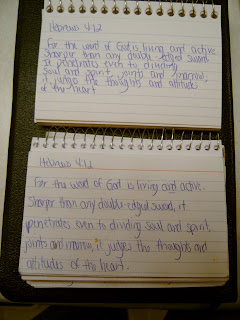 Hebrews 4:12
For the word of God is living and active
Sharper than any double-edged sword
It penetrates even to dividing
Soul and spirit, joints and marrow;
it judges the thoughts and attitudes
of the heart
Hebrews 4:12
For the word of God is living and active.
Sharper than any double-edged sword, it
penetrates even to dividing soul and spirit,
joints and marrow; it judges the thoughts and
attitudes of the heart.